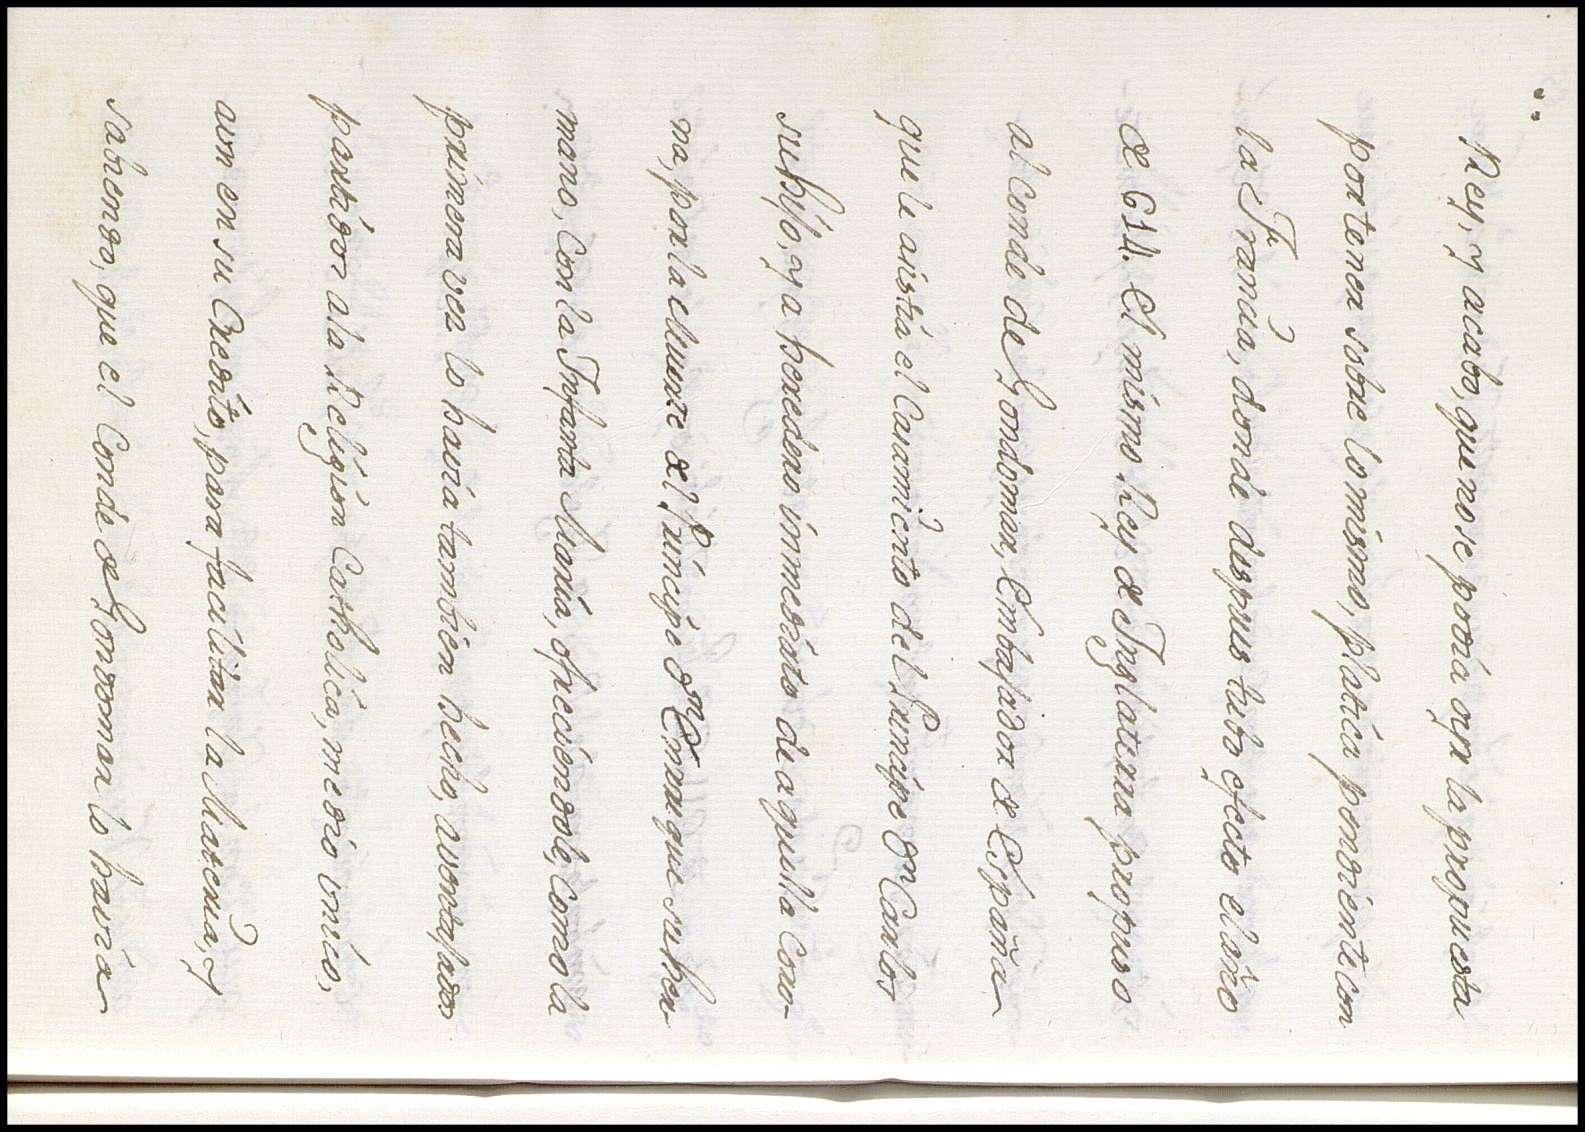 Rey, y acabo, que no se podria oyr la propuesta
por tener sobre lo mismo, platica pendiente con
la Francia, donde despues tubo efecto el año
de 614. El mismo Rey de Inglaterra propuso
al Conde de Gondomar, Embajador de España
que le asistia el Casamiento del Principe Dn Carlos
su hijo, ya heredero inmediato de aquella Coro-
na, por la Muerte del Principe Dn Enrrique su her-
mano, Con la Infanta Maria, ofreciendole, Como la
primera vez lo havia tambien hecho, avone
pasandose ala Religion Catholica, medio unico,
aun en su Credito, para facilitar la Materia, y
sabiendo, que el Conde de Gondomar lo havia